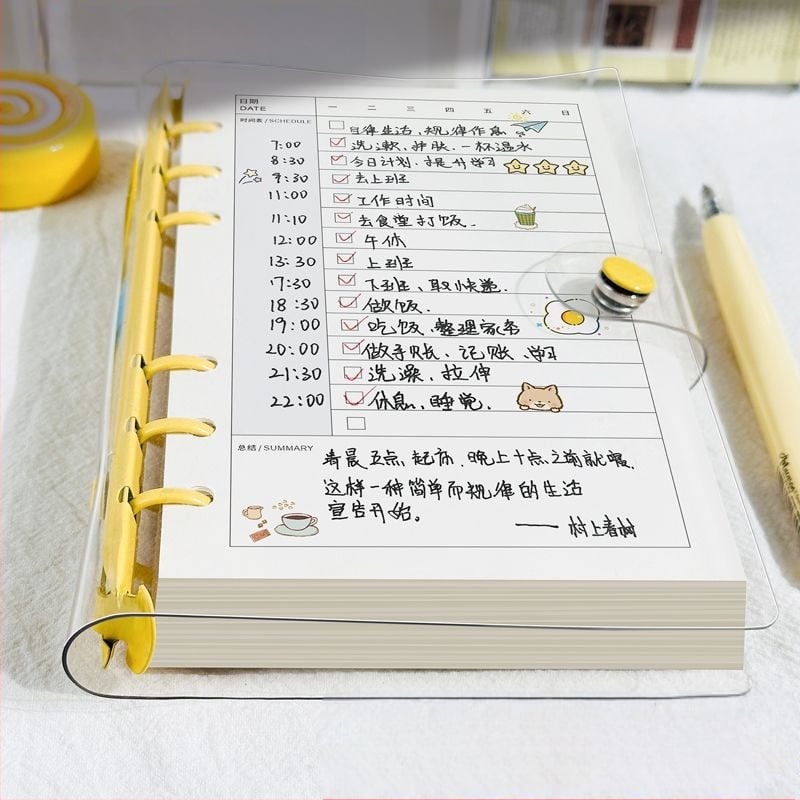 日期
DATE 一 二 三 四 五 六 日
时间表/SCHEDULE 自律生活、规律作息
7:00 洗漱、护肤、一杯温水
8:30 今日计划、提升学习
9:30 去上班
11:00 工作时间
11:10 去食堂打饭.
12:00 午休
13:30 上班
17:30 下班、取快递.
18:30 做饭.
19:00 吃饭、整理家务
20:00 做手账、记账、学习
21:30 洗澡、拉伸
22:00 休息、睡觉.
总结/SUMMARY
清晨五点起床、晚上十点之前就寝,
这样一种简单而规律的生活
宣告开始。
——村上春树